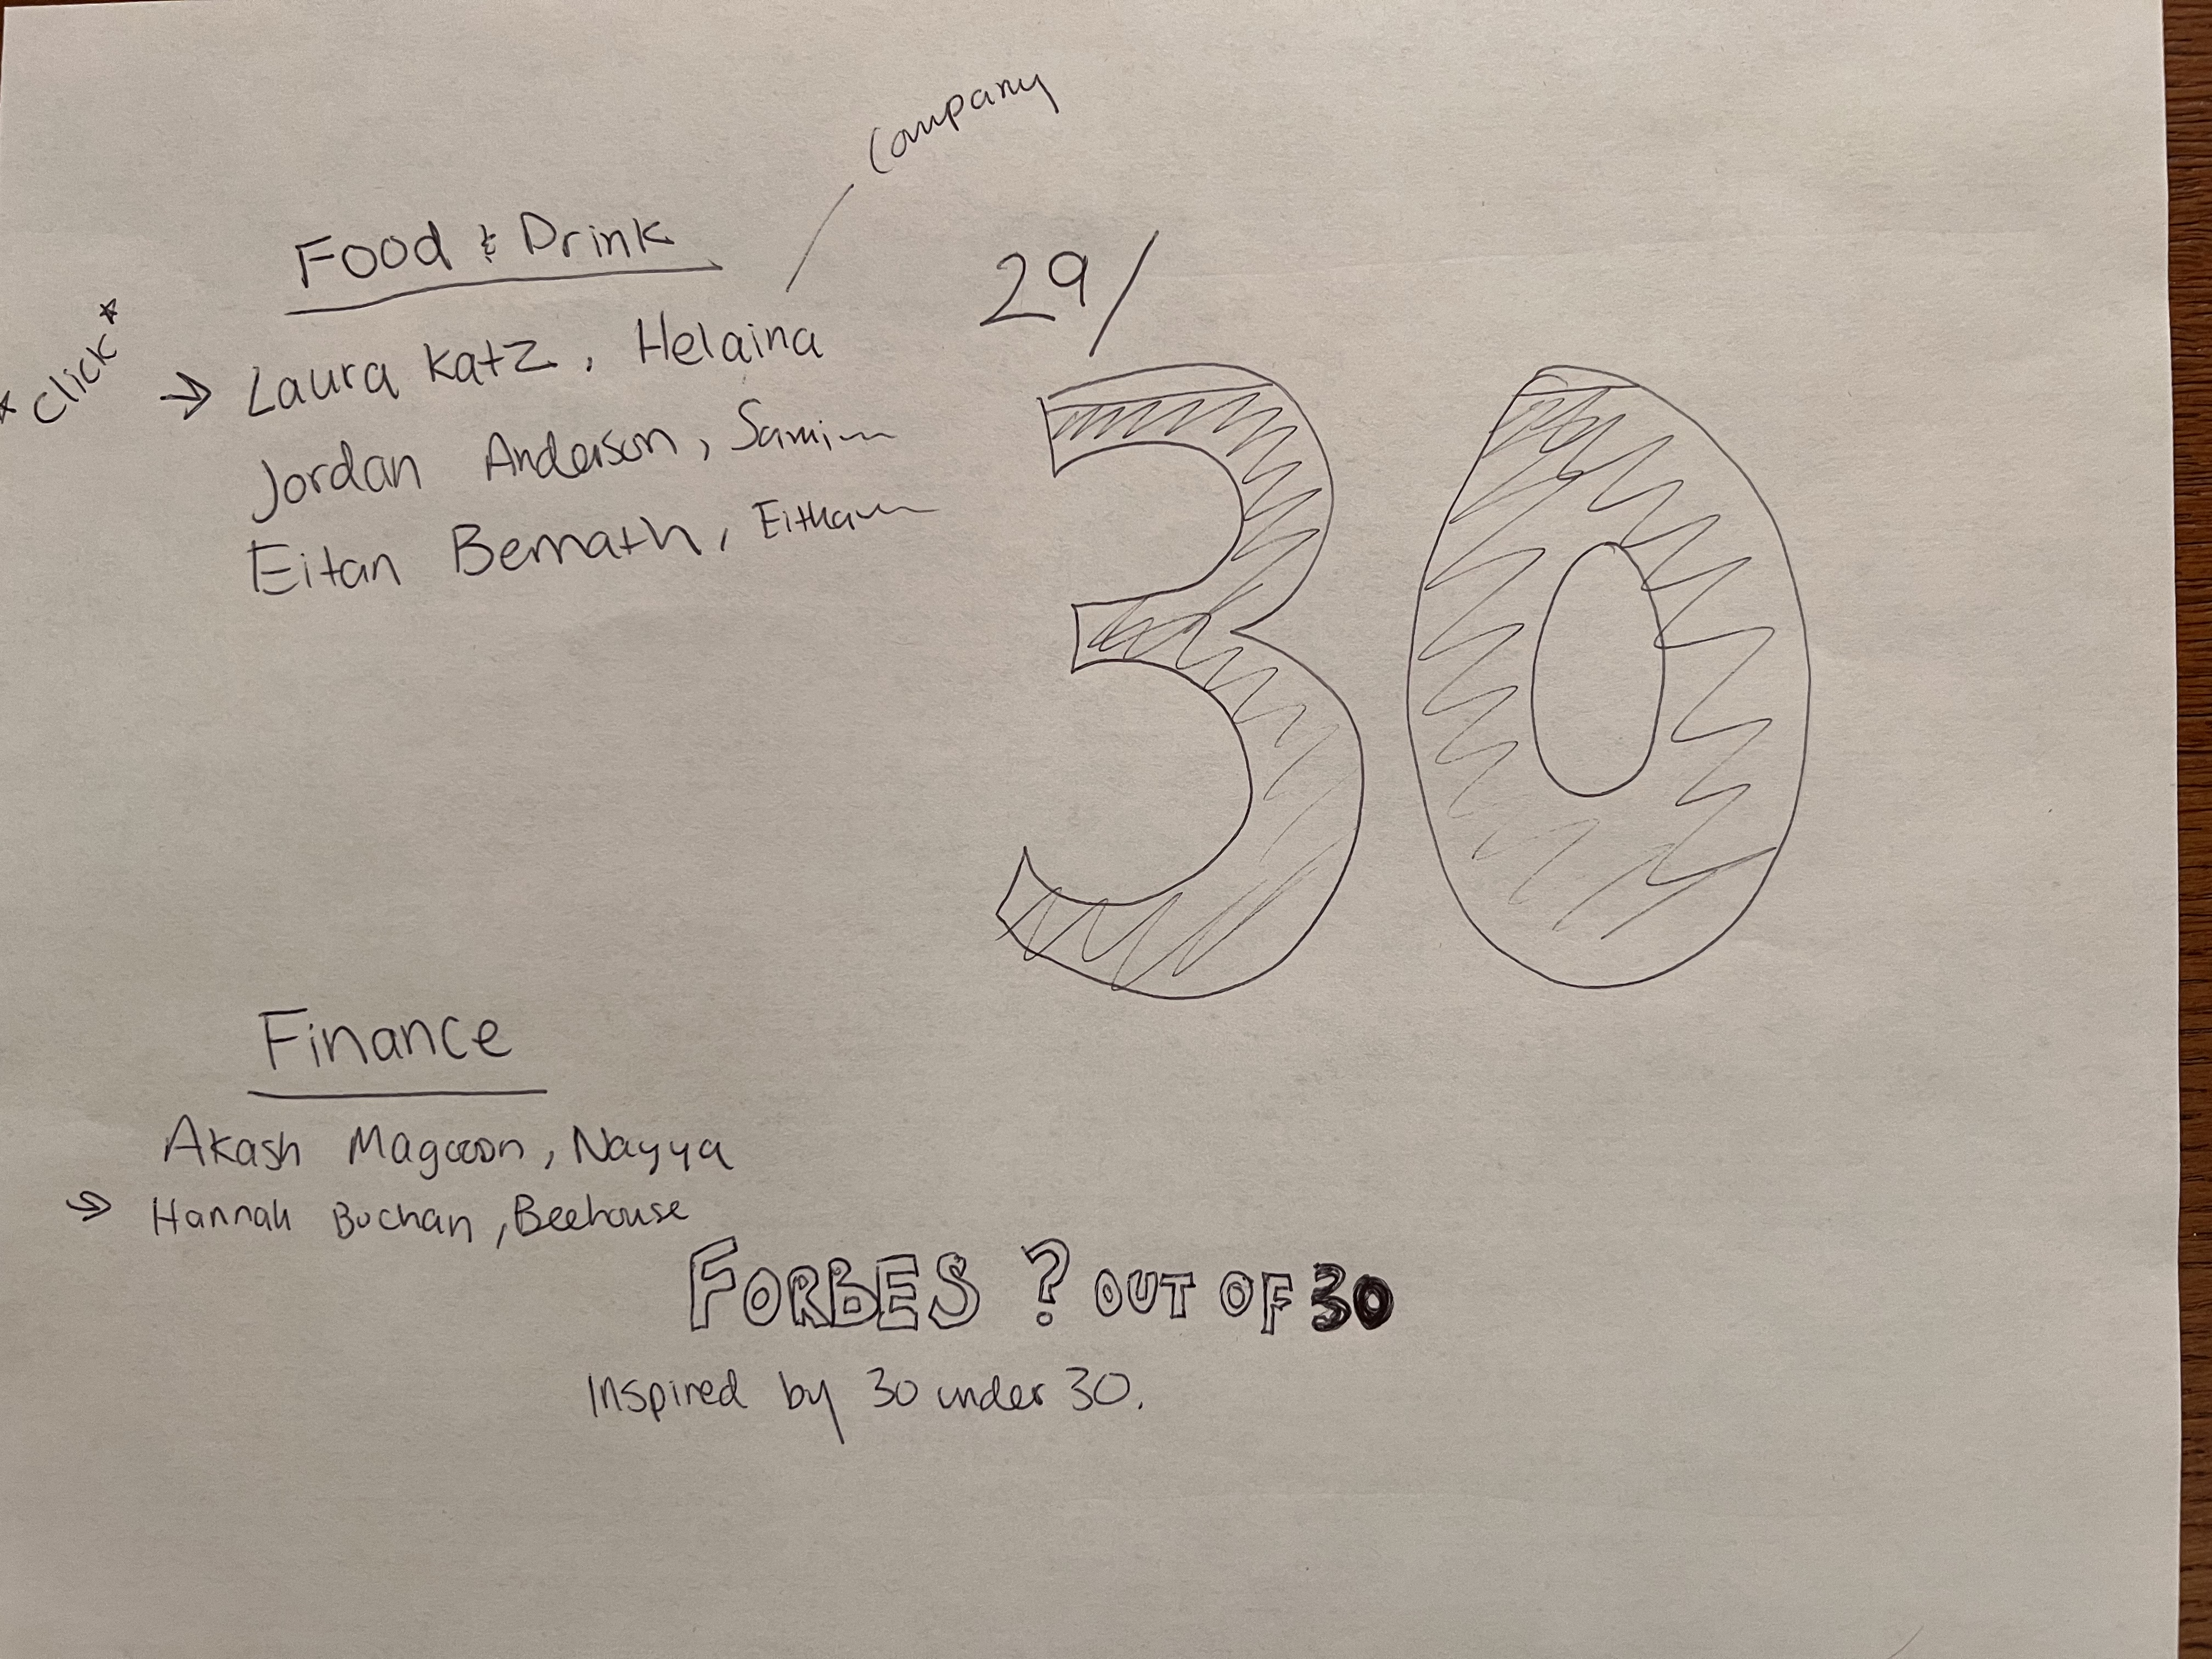 Company
Food & Drink
29/
* click *
→ Laura Katz, Helaina
Jordan Anderson,
Eitan Bernath,
30
Finance
Akash Magoon, Nayya
→ Hannah Buchan, Beehouse
FORbES ? OUT OF 30
Inspired by 30 under 30.